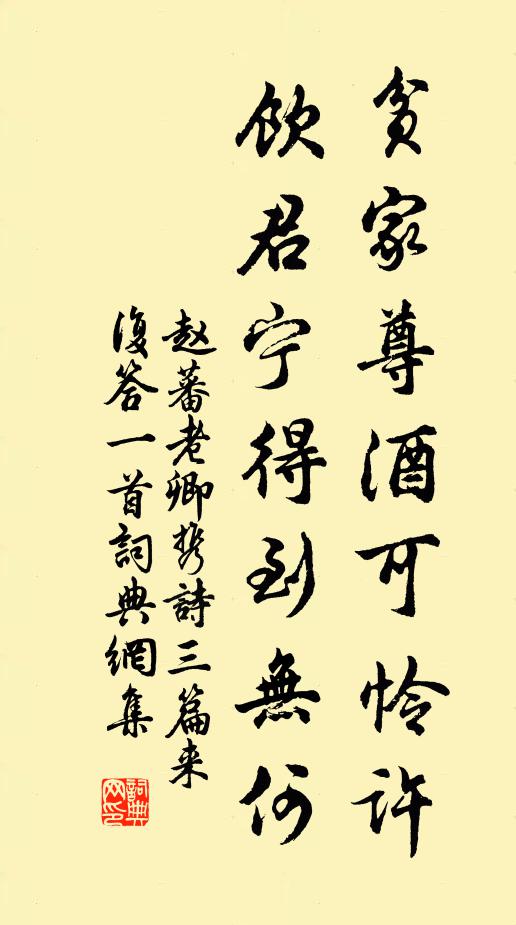 贫家尊酒可怜许
飲君宁得到無何
赵蕃老卿携詩三篇来
復答一首詞典網集
詞典網印